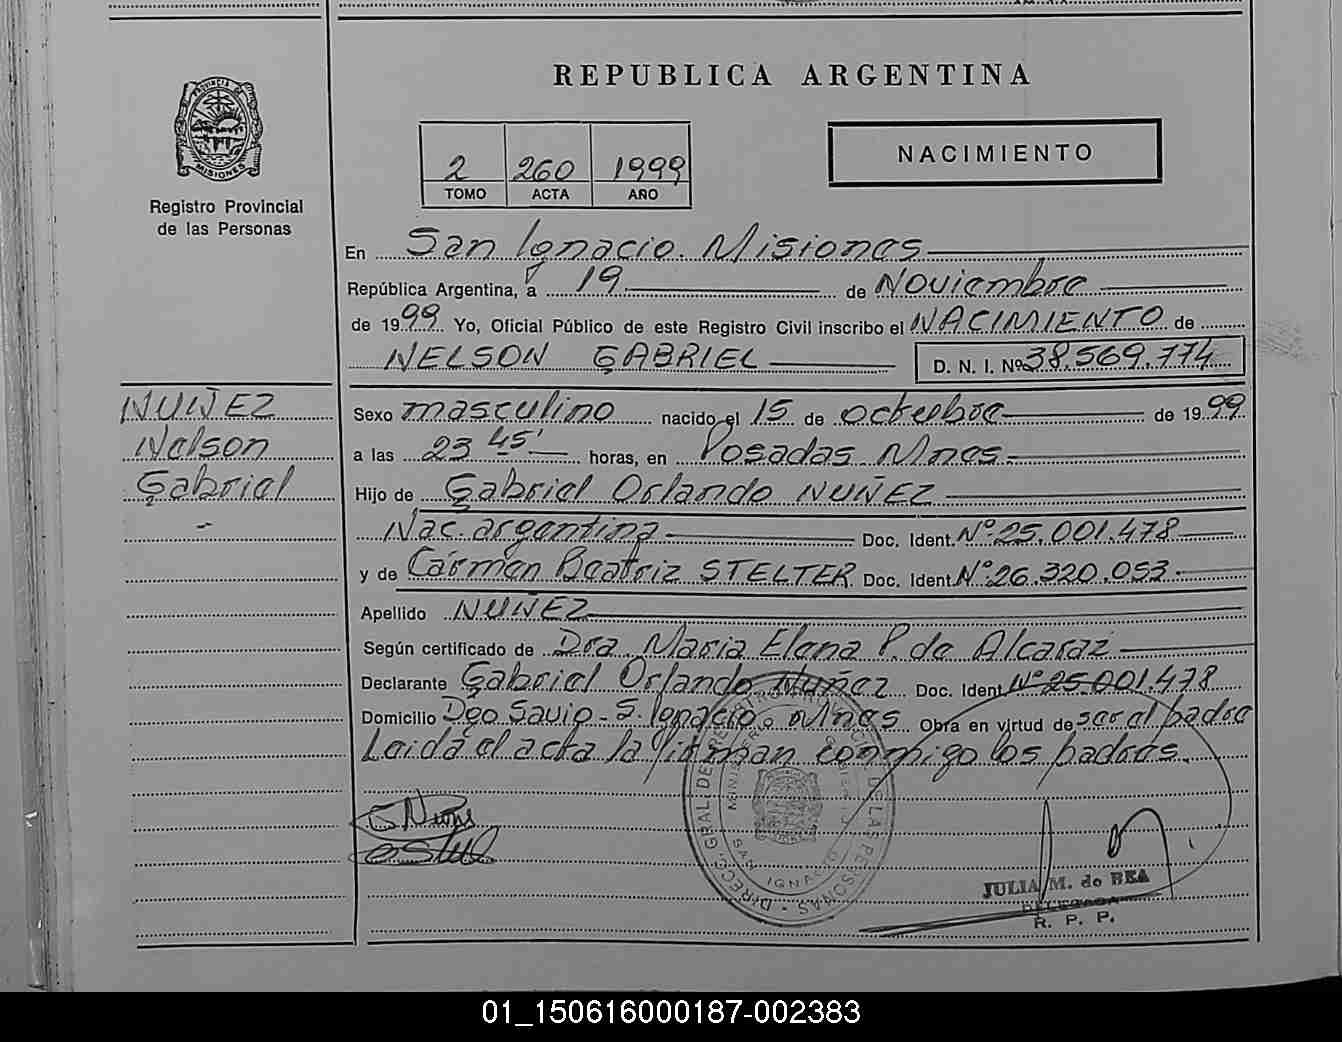 REPUBLICA ARGENTINA
PROVINCIA DE
MISIONES
Registro Provincial
de las Personas
2 260 1999
TOMO ACTA AÑO
NACIMIENTO
En San Ignacio. Misiones
República Argentina, a 19 de Noviembre
de 1999 Yo, Oficial Público de este Registro Civil inscribo el NACIMIENTO de
NELSON GABRIEL D. N. I. Nº 38.569.774
NUÑEZ
Nelson
Gabriel
-
Sexo masculino nacido el 15 de octubre de 1999
a las 23 45' horas, en Posadas. Mnes.
Hijo de Gabriel Orlando NUÑEZ
Nac. argentina Doc. Ident. Nº 25.001.478
y de Carmen Beatriz STELTER Doc. Ident. Nº 26.320.053
Apellido NUÑEZ
Según certificado de Dra. Maria Elena P. de Alcaraz
Declarante Gabriel Orlando Nuñez Doc. Ident. Nº 25.001.478
Domicilio Dgo Savio - S. Ignacio. Mnes Obra en virtud de ser el padre
Leida el acta la firman conmigo los padres.
SAN IGNACIO
JULIA M. de BEA
DELEGADA
R. P. P.
01_150616000187-002383